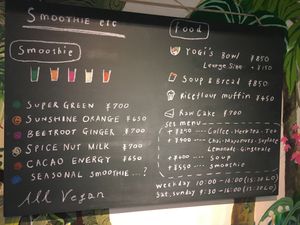 SMOOTHIE etc
Smoothie
SUPER GREEN ¥700
SUNSHINE ORANGE ¥650
BEETROOT GINGER ¥700
SPICE NUT MILK ¥700
CACAO ENERGY ¥650
SEASONAL SMOOTHIE ...?
All Vegan
Food
YOGi's BOWL ¥850
Large Size + ¥150
Soup & Bread ¥850
Riceflour muffin ¥450
Raw Cake ¥700
set menu
Coffee. Herbtea. Tea
Lemonade. Gingerale
+ ¥400 ---- Soup
+ ¥550 ---- smoothie
weekday 10:00 - 16:00 (15:30 LO)
Sat, sunday 9:30 - 16:00 (15:30 LO)